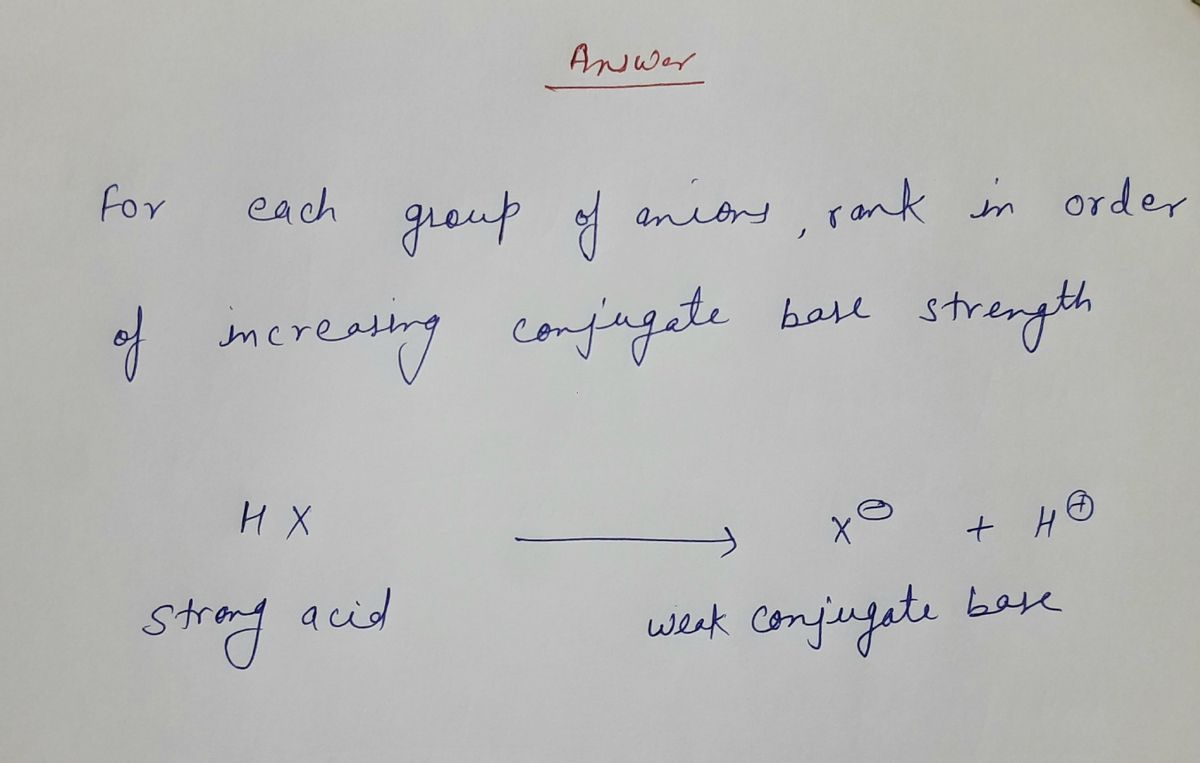 Answer
For each group of anions, rank in order
of increasing conjugate base strength
HX ⟶ X⊖ + H⊕
strong acid weak conjugate base